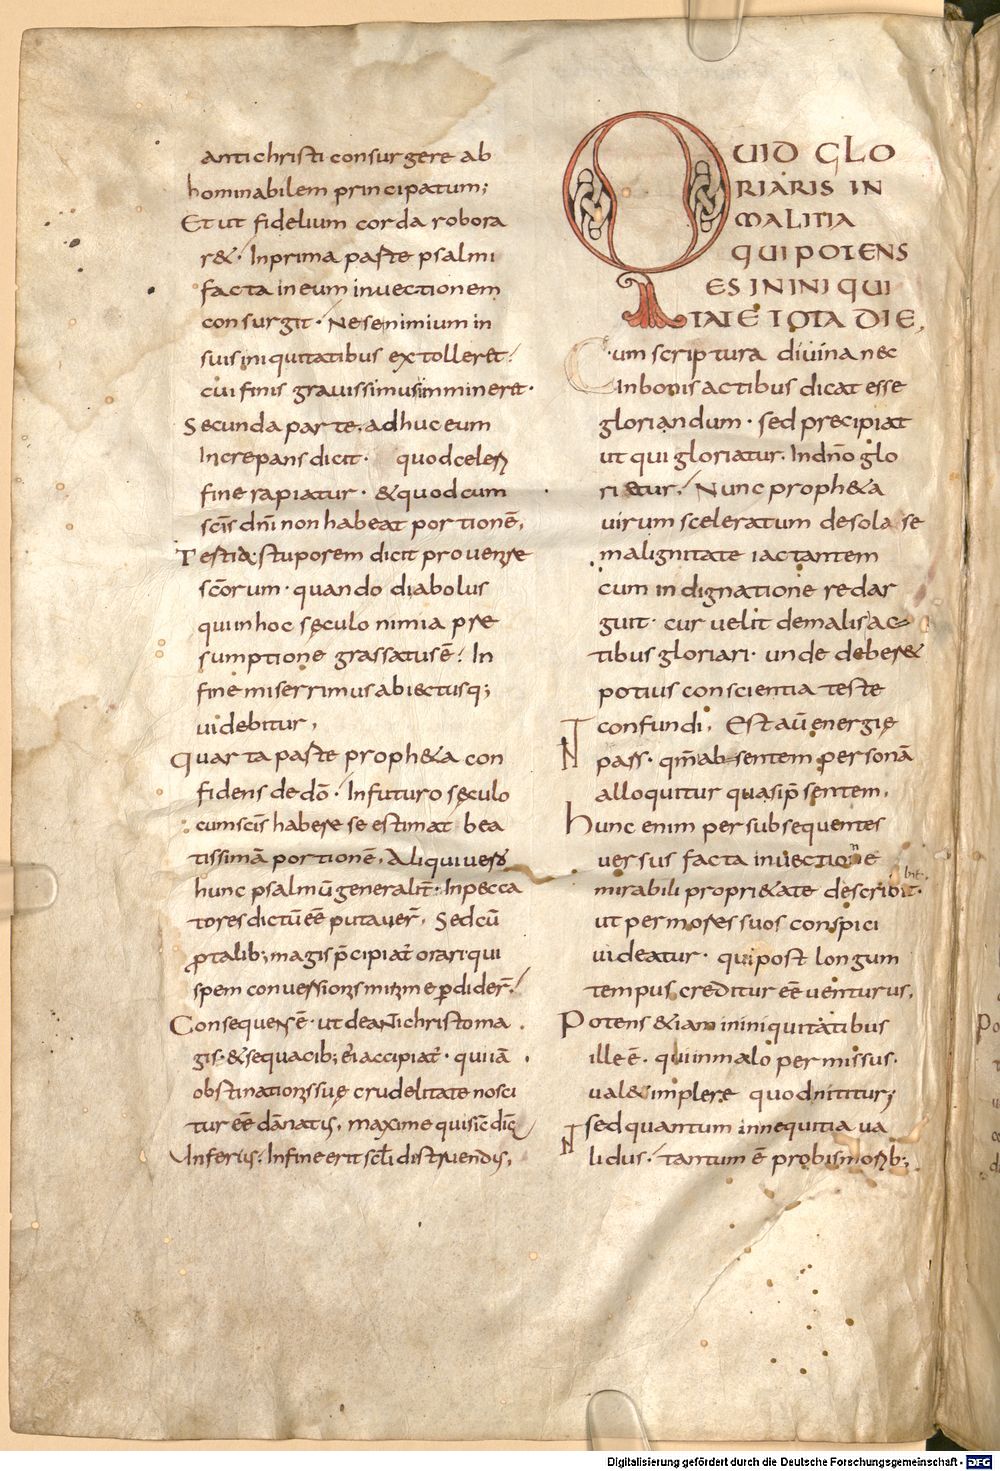 antichristi consurgere ab
hominabilem principatum;
Et ut fidelium corda robora
r&· Inprima parte psalmi
facta in eum inuectionem
consurgit· Ne se nimium in
suis iniquitatibus extolleret·
cui finis grauissimus immineret·
Secunda parte, adhuc eum
Increpans dicit· quod celeri
fine rapiatur· & quod cum
scīs dn̄i non habeat portionē,
Tertia; stuporem dicit prouenire
scōrum· quando diabolus
qui in hoc sęculo nimia pre
sumptione grassatus ē· In
fine miserrimus abiectusq;
uidebitur,
Quarta parte proph&a con
fidens de dō· In futuro sęculo
cum scīs habere se estimat bea
tissimā portionē, Aliqui uero
hunc psalmū generalit̄· In pecca
tores dictū eē putauer̄, Sed cū
ꝓ talib; magis p̄cipiat̄ orari qui
spem conuersionis minime ꝑdider̄·
Consequens ē· ut de anti christo ma
gis· & sequacib; ei accipiat̄· qui iā
obstinationis suę crudelitate nosci
tur eē dānatus, maxime qui sic̄ dic̄
In feriis· In fine erit sc̄li distruendus,
QUID GLO
RIARIS IN
MALITIA
QUI POTENS
ES IN INIQUI
TATE TOTA DIE,
Cum scriptura diuina nec
In bonis actibus dicat esse
gloriandum· sed precipiat
ut qui gloriatur· In dn̄o glo
rietur· Nunc proph&a
uirum sceleratum de sola se
malignitate iactantem
cum indignatione redar
guit· cur uelit de malis ac
tibus gloriari· unde deber&
potius conscientia teste
confundi, Est aū energię
pass· qm̄ absentem personā
alloquitur quasi p̄sentem,
Hunc enim per subsequentes
uersus facta inuectione
mirabili propri&ate describit·
bit·
ut per mores suos conspici
uideatur· qui post longum
tempus creditur eē uenturus,
Potens &iam in iniquitatibus
ille ē· qui in malo permissus·
ual& implere quod nititur;
sed quantum in nequitia ua
lidus· tantum ē probis morib;
Digitalisierung gefördert durch die Deutsche Forschungsgemeinschaft - DFG